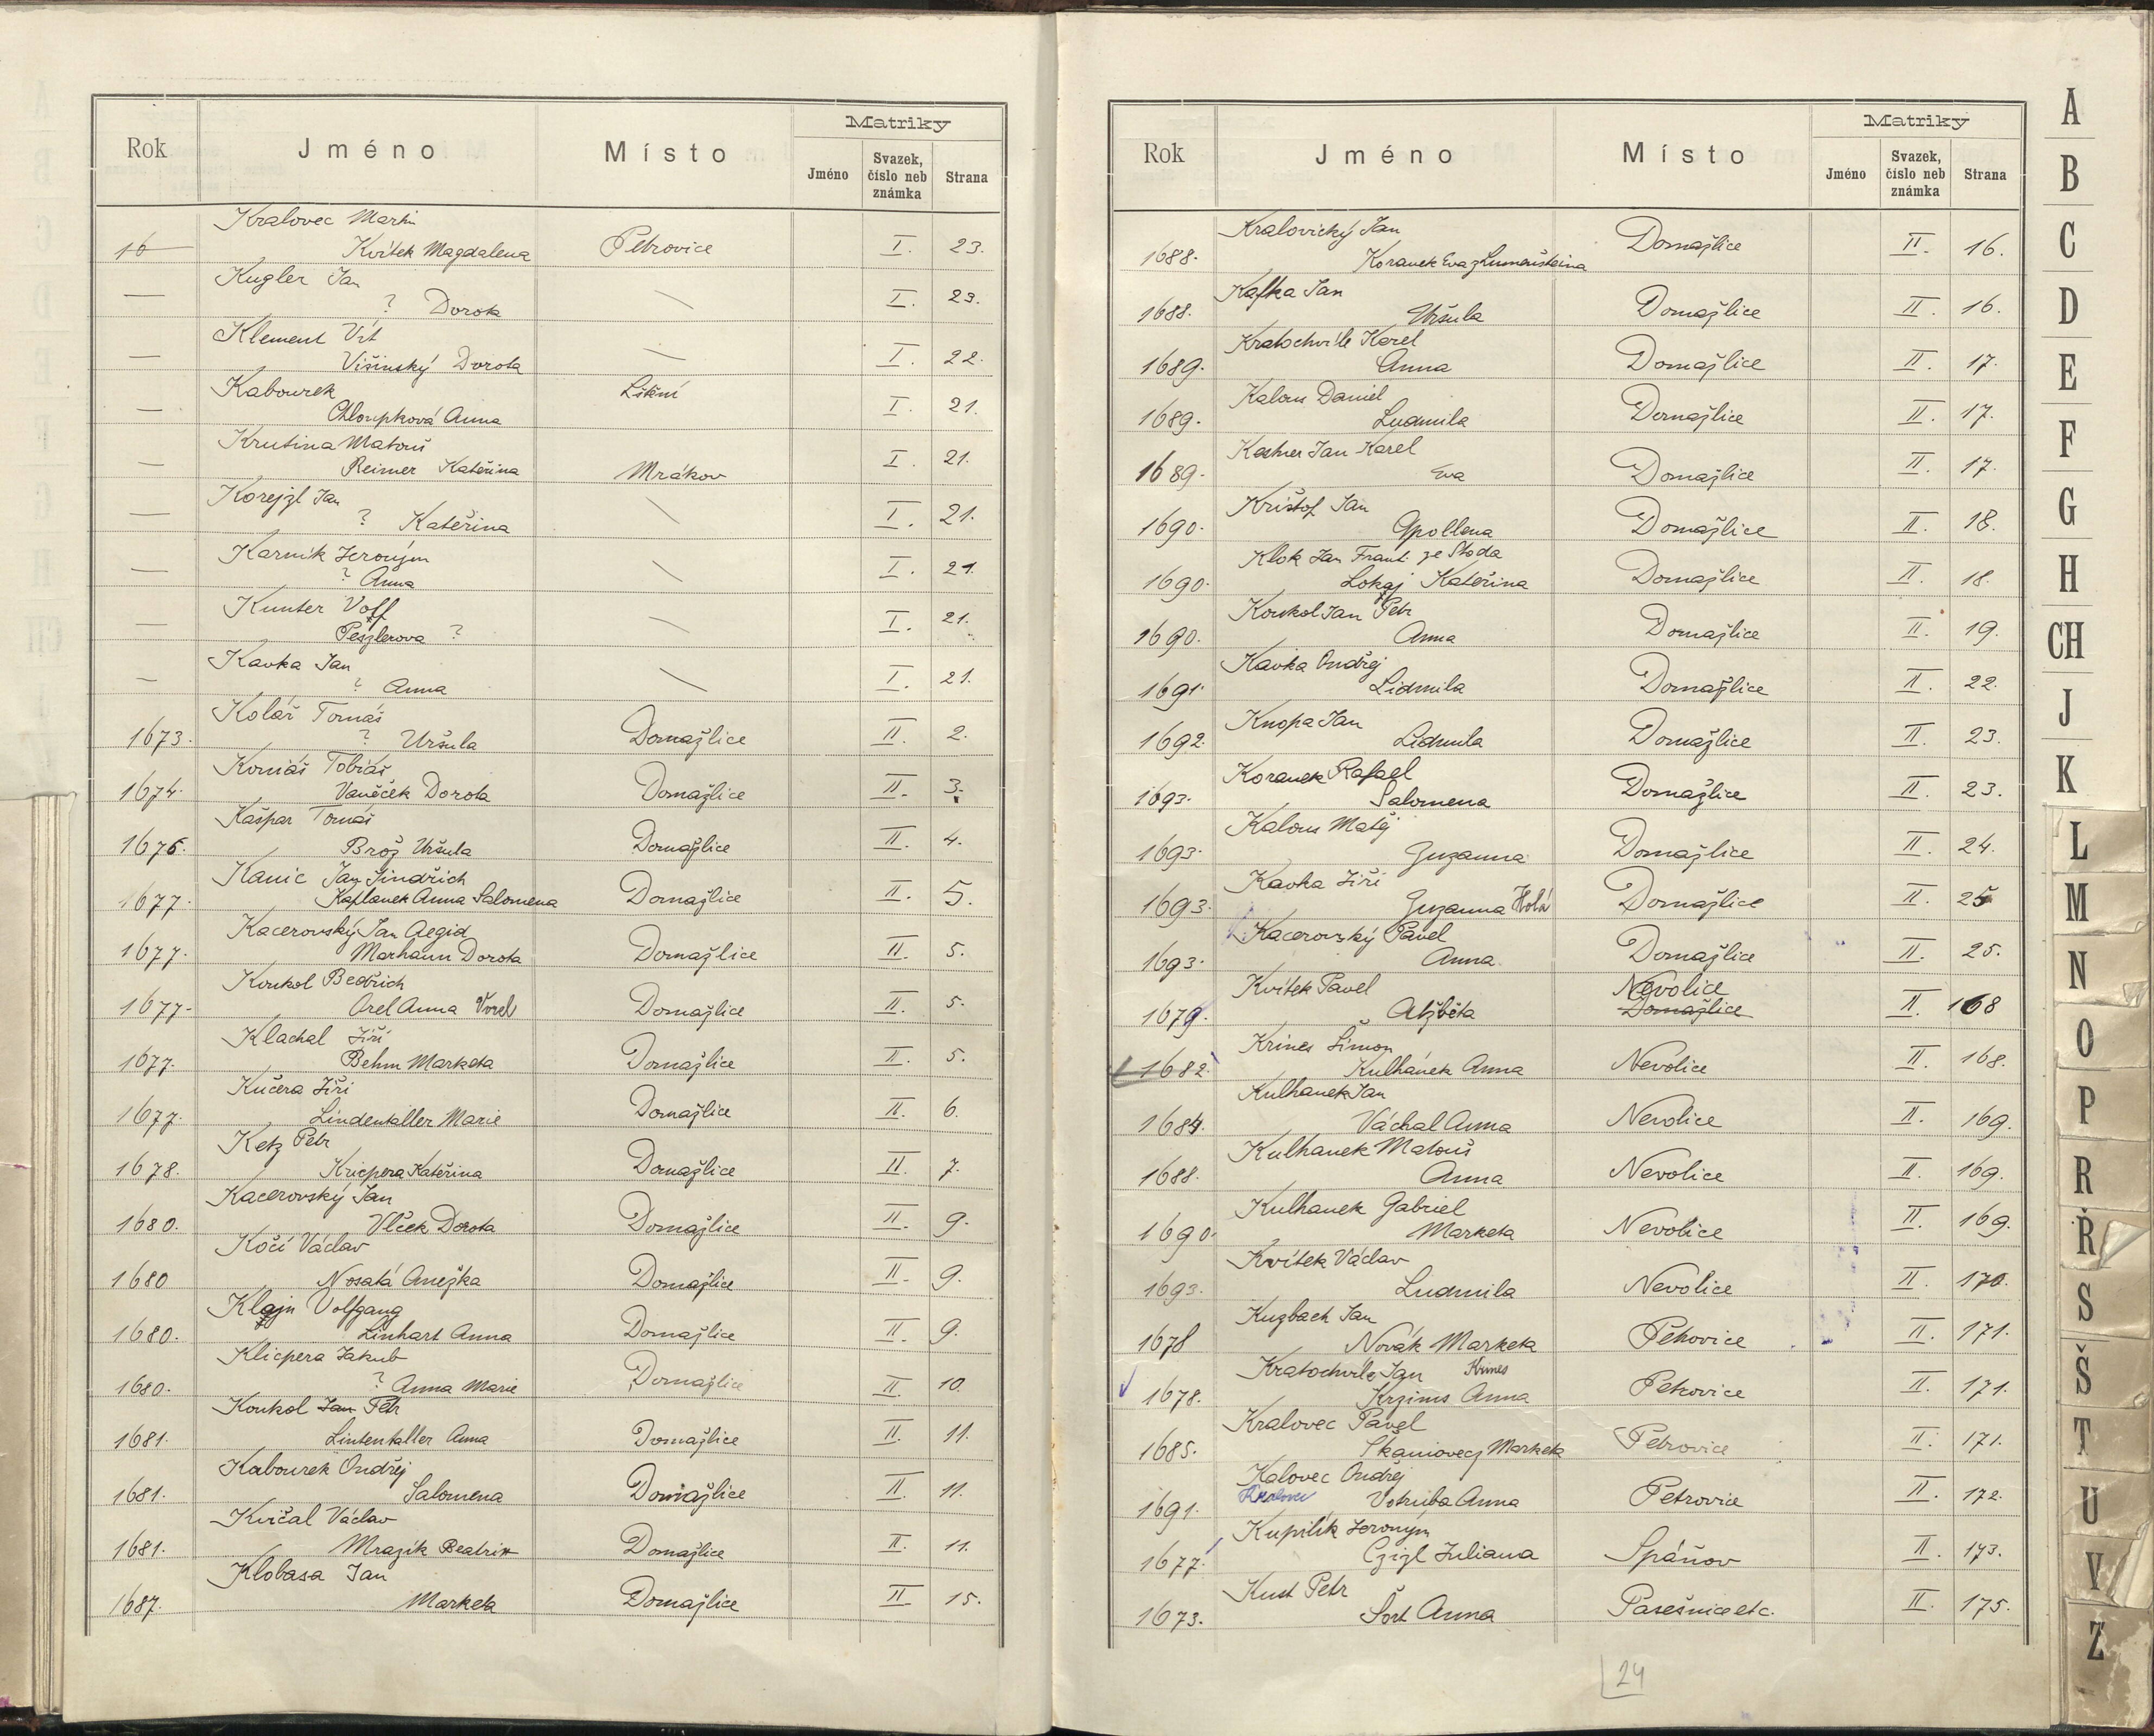 Matriky
Rok Jméno Místo Jméno Svazek, číslo neb známka Strana
Kralovec Martin
16— Kvítek Magdalena Petrovice I. 23.
Kugler Jan
— ? Dorota — I. 23.
Klement Vít
— Višinský Dorota — I. 22.
Kabourek Liškní
— Chloupková Anna I. 21.
Krutina Matouš
— Reimer Kateřina Mrákov I. 21.
Korejzl Jan
— ? Kateřina — I. 21.
Karnik Jeroným
— ? Anna — I. 21.
Kunter Voff
— Peszlerova ? — I. 21.
Kavka Jan
— ? Anna — I. 21.
Kolář Tomáš
1673. ? Uršula Domažlice II. 2.
Komáš Tobiáš
1674. Vaněček Dorota Domažlice II. 3.
Kašpar Tomáš
1676. Brož Uršula Domažlice II. 4.
Kanic Jan Jindřich
1677. Kaflanek Anna Salomena Domažlice II. 5.
Kacerovský Jan Aegid
1677. Marhaun Dorota Domažlice II. 5.
Koukol Bedřich
1677. Orel Anna Vorel Domažlice II. 5.
Klachal Jiří
1677. Behm Marketa Domažlice II. 5.
Kučera Jiři
1677. Lindentaller Marie Domažlice II. 6.
Ketz Petr
1678. Kricpera Kateřina Domažlice II. 7.
Kacerovský Jan
1680. Vlček Dorota Domažlice II. 9.
Kočí Václav
1680 Nosatá Anežka Domažlice II. 9.
Klajn Volfgang
1680. Linhart Anna Domažlice II. 9.
Klicpera Jakub
1680. ? Anna Marie Domažlice II. 10.
Koukol Jan Petr
1681. Lintentaller Anna Domažlice II. 11.
Kabourek Ondřej
1681. Salomena Domažlice II. 11.
Kvičal Václav
1681. Mrazík Beatrix Domažlice II. 11.
Klobasa Jan
1687. Marketa Domažlice II 15.
Matriky
Rok Jméno Místo Jméno Svazek, číslo neb známka Strana
Kralovický Jan
1688. Koranek Eva z Lumenšteina Domažlice II. 16.
Kafka Jan
1688. Uršula Domažlice II. 16.
Kratochvíle Karel
1689. Anna Domažlice II. 17.
Kalous Daniel
1689. Ludmila Domažlice II. 17.
Kastner Jan Karel
1689. Eva Domažlice II. 17.
Krištof Jan
1690. Apollena Domažlice II. 18.
Klok Jan Frant. ze Stoda
1690. Lokaj Kateřina Domažlice II. 18.
Koukol Jan Petr
1690. Anna Domažlice II. 19.
Kavka Ondřej
1691. Lidmila Domažlice II. 22.
Knopa Jan
1692. Lidmila Domažlice II. 23.
Koranek Rafael
1693. Salomena Domažlice II. 23.
Kalous Matěj
1693. Zuzanna Domažlice II. 24.
Kavka Jiří
1693. Zuzanna Holá Domažlice II. 25
Kacerovský Pavel
1693. Anna Domažlice II. 25.
Kvítek Pavel Nevolice
1679. Alžběta Domažlice II. 168
Krines Šimon
1682. Kulhánek Anna Nevolice II. 168.
Kulhanek Jan
1684. Váchal Anna Nevolice II. 169.
Kulhanek Matouš
1688. Anna Nevolice II. 169.
Kulhanek Gabriel
1690. Marketa Nevolice II. 169.
Kvítek Václav
1693. Ludmila Nevolice II. 170.
Kuzbach Jan
1678 Novák Marketa Petrovice II. 171.
Kratochvile Jan Krines
1678. Krzinis Anna Petrovice II. 171.
Kralovec Pavel
1685. Skaniovecz Marketa Petrovice II. 171.
Kalovec Ondřej
Kralovec
1691. Votruba Anna Petrovice II. 172.
Kupilík Jeroným
1677. Czizl Juliana Spáňov II. 173.
Kust Petr
1673. Šort Anna Pasešnice etc. II. 175.
24
A
B
C
D
E
F
G
H
CH
J
K
L
M
N
O
P
R
Ř
S
Š
T
U
V
Z